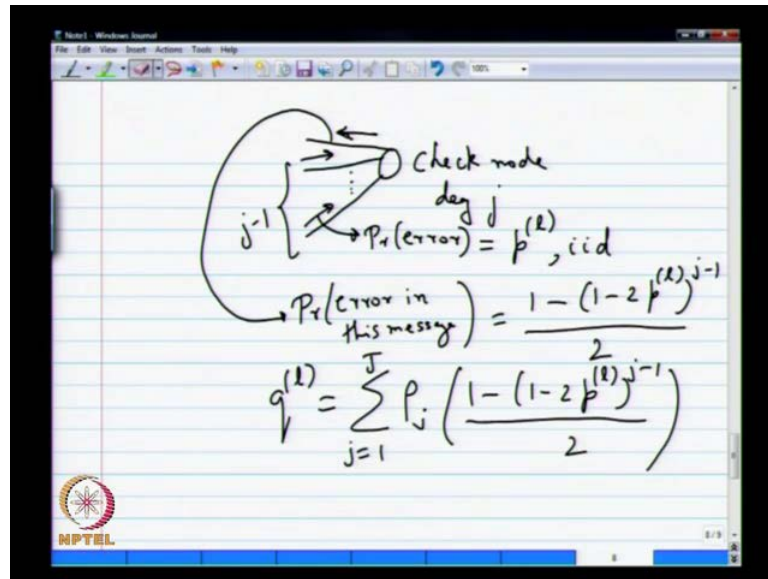 Note1 - Windows Journal
File Edit View Insert Actions Tools Help
100%
Check node
deg j
j-1
Pr(error) = p^(l), iid
Pr(error in this message) = (1 - (1 - 2 p^(l))^(j-1)) / 2
q^(l) = Σ_{j=1}^{J} ρ_j ( (1 - (1 - 2 p^(l))^(j-1)) / 2 )
NPTEL
8/9
8